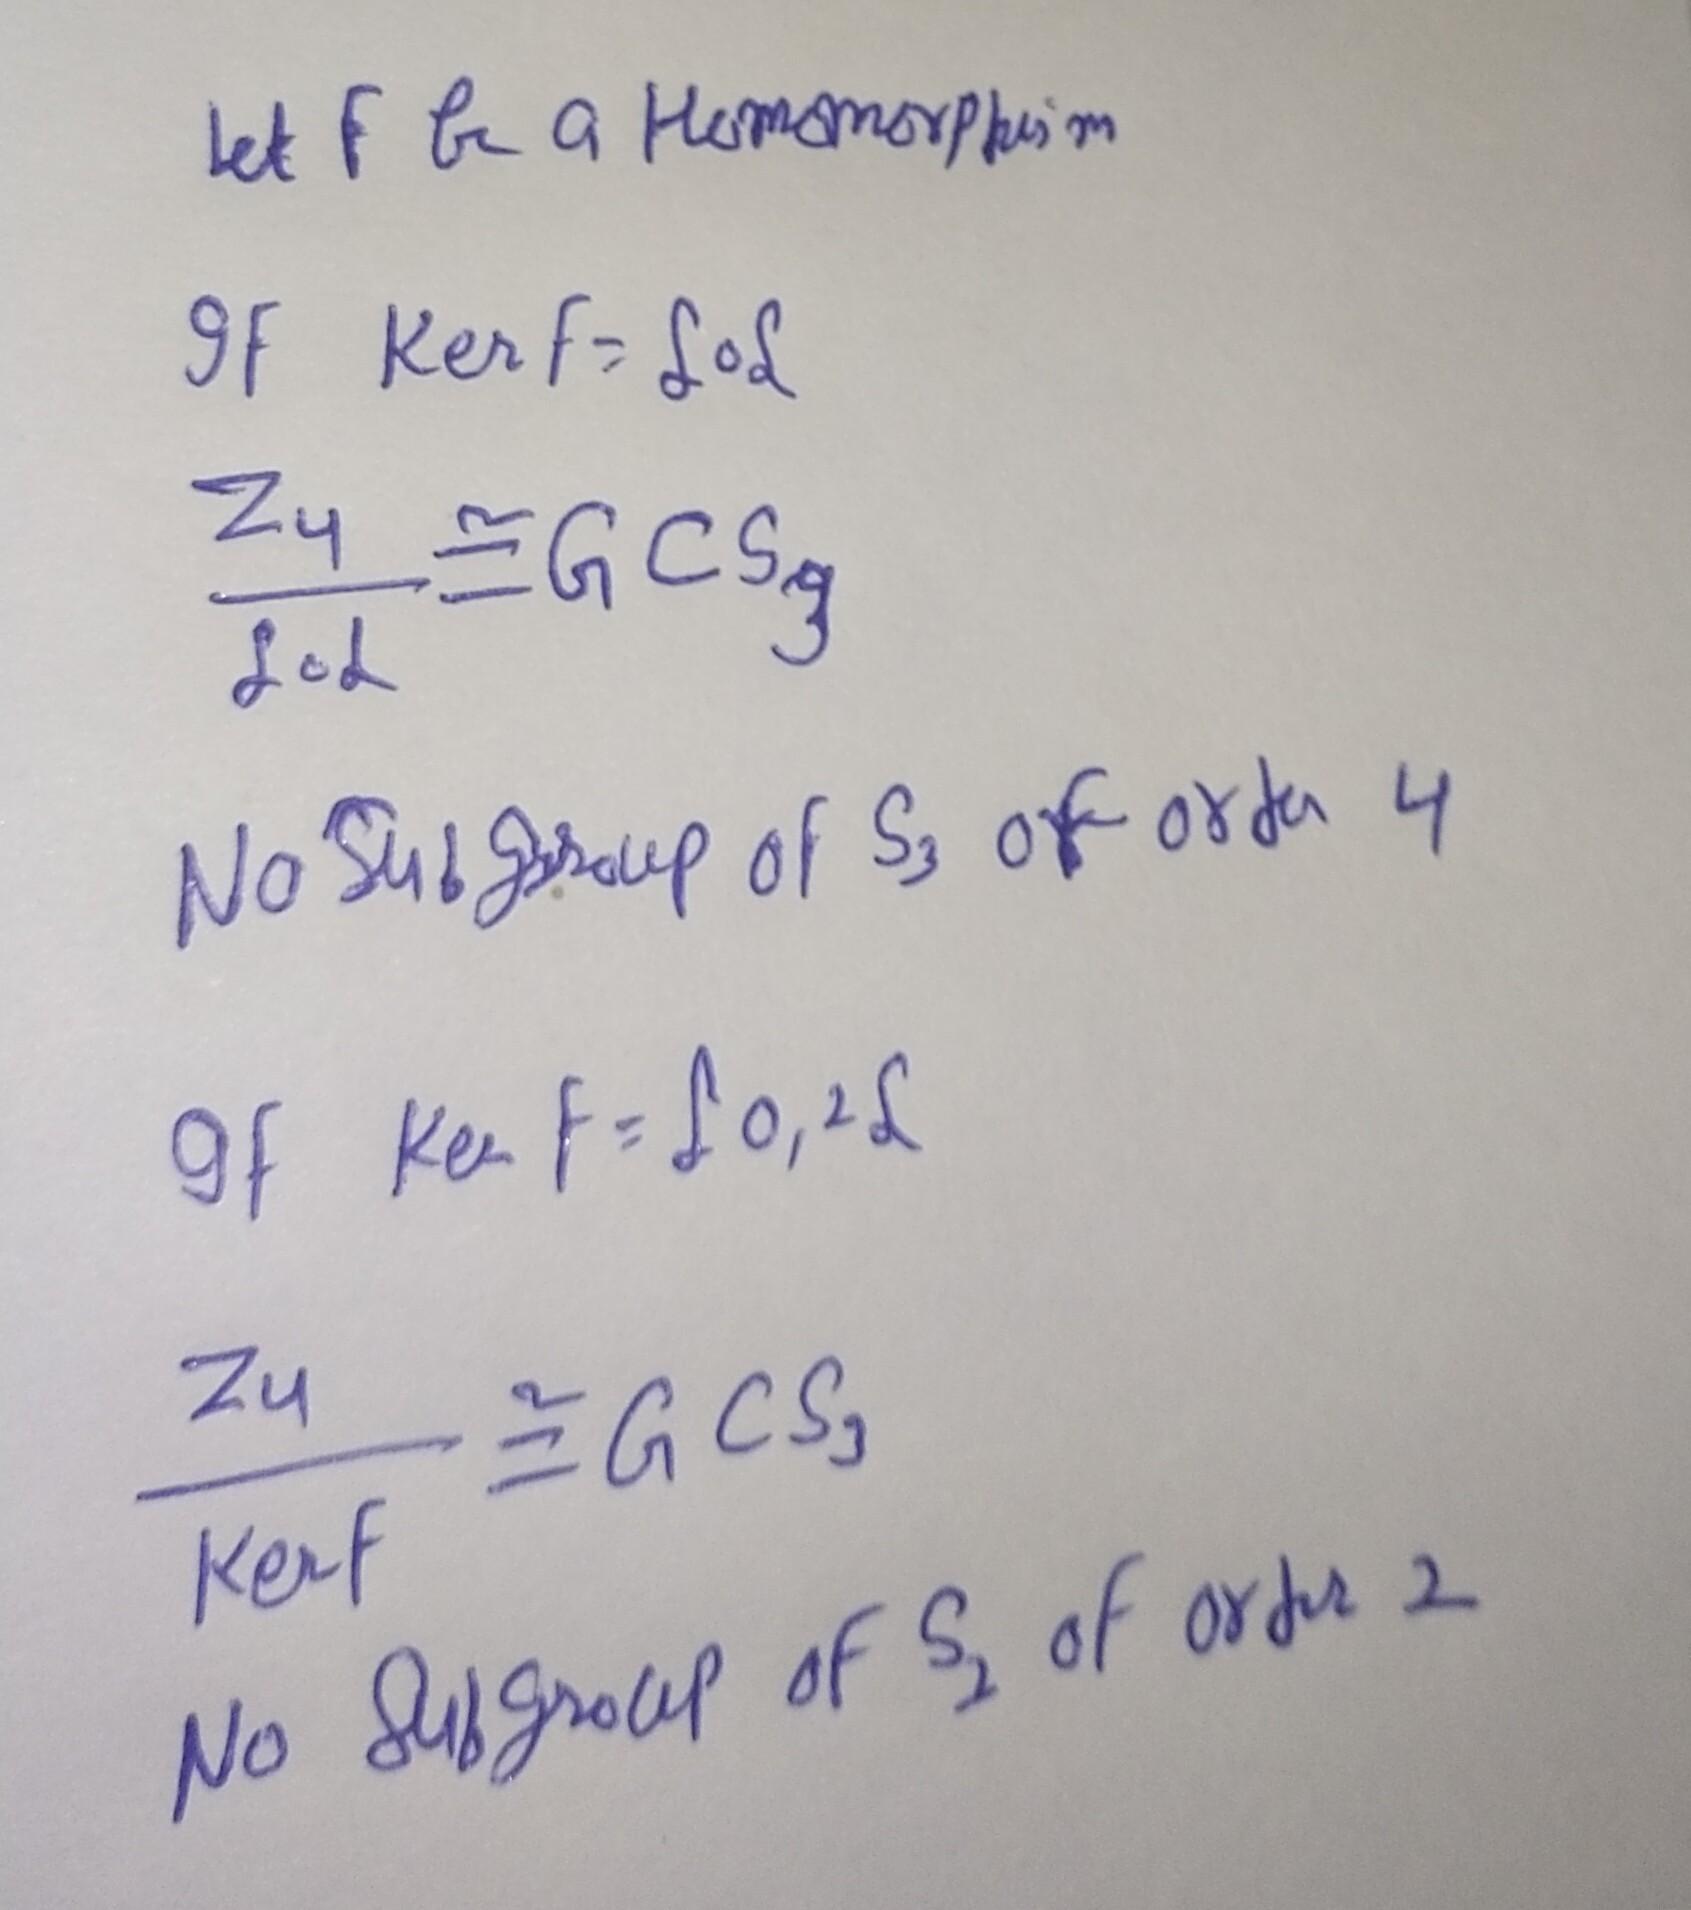 Let f be a Homomorphism
If Ker f = {0}
Z4 / {0} ≅ G ⊂ S3
No Subgroup of S3 of order 4
If Ker f = {0,2}
Z4 / Ker f ≅ G ⊂ S3
No Subgroup of S2 of order 2